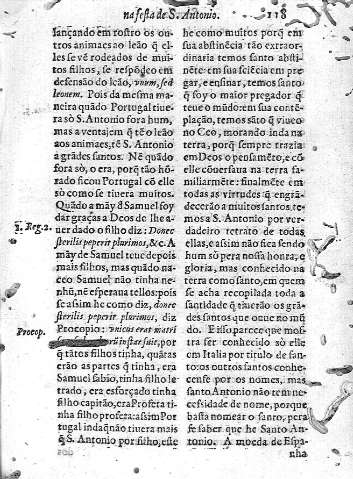 na festa de S. Antonio. 118
lançando em rosto os ou-
tros animaes ao leão q̃ el-
les se vẽ rodeados de mui-
tos filhos, se respõdeo em
defensão do leão, vnum, sed
leonem. Pois da mesma ma-
neira quãdo Portugal tiue-
ra sò S. Antonio fora hum,
mas a ventajem q̃ tẽ o leão
aos animaes, tẽ S. Antonio
a grãdes santos. Nẽ quãdo
fora sò, o era, porq̃ tão hõ-
rado ficou Portugal cõ elle
sò como se tiuera muitos.
Quãdo a mãy d̃ Samuel foy
dar graças a Deos de lhe a-
uer dado o filho diz: Donec
sterilis peperit plurimos, &c. A
mãy de Samuel teue depois
mais filhos, mas quãdo na-
ceo Samuel não tinha ne-
nhũ, nẽ esperaua tellos: pois
se assim he como diz, donec
sterilis peperit plurimos, diz
Procopio: vnicus erat matri
instar fuit, por
q̃ tãtos filhos tinha, quãtas
erão as partes q̃ tinha, era
Samuel sabio, tinha filho le
trado, era esforçado tinha
filho capitão, era Profeta ti-
nha filho profeta: assim Por
tugal inda q̃ não tiuera mais
q̃ S. Antonio por filho, este
1. Reg. 2.
Procop.
he como muitos porq̃ em
sua abstinẽcia tão extraor-
dinaria temos santo absti-
nẽte: em sua sciẽcia em pre
gar, e ensinar, temos santo
q̃ foy o maior pregador q̃
teue o mũdo: em sua contẽ
plação, temos sãto q̃ viueo
no Ceo, morando inda na
terra, porq̃ sempre trazia
em Deos o pensamẽto, e cõ
elle cõuersaua na terra fa-
miliarmẽte: finalmẽte em
todas as virtudes q̃ engrã-
decerão a muitos santos, te-
mos a S. Antonio por ver-
dadeiro retrato de todas
ellas, e assim não fica sendo
hum sò pera nossa honra, e
gloria, mas conhecido na
terra como santo, em quem
se acha recopilada toda a
santidade q̃ tiuerão os grã-
des santos que ouue no mũ
do. E isso parece que mos-
tra ser conhecido sò elle
em Italia por titulo de san-
to: os outros santos conhe-
cense por os nomes, mas
santo Antonio não tem ne-
cessidade de nome, porque
basta nomear o santo, pera
se saber que he Santo An-
tonio. A moeda de Espa-
nha